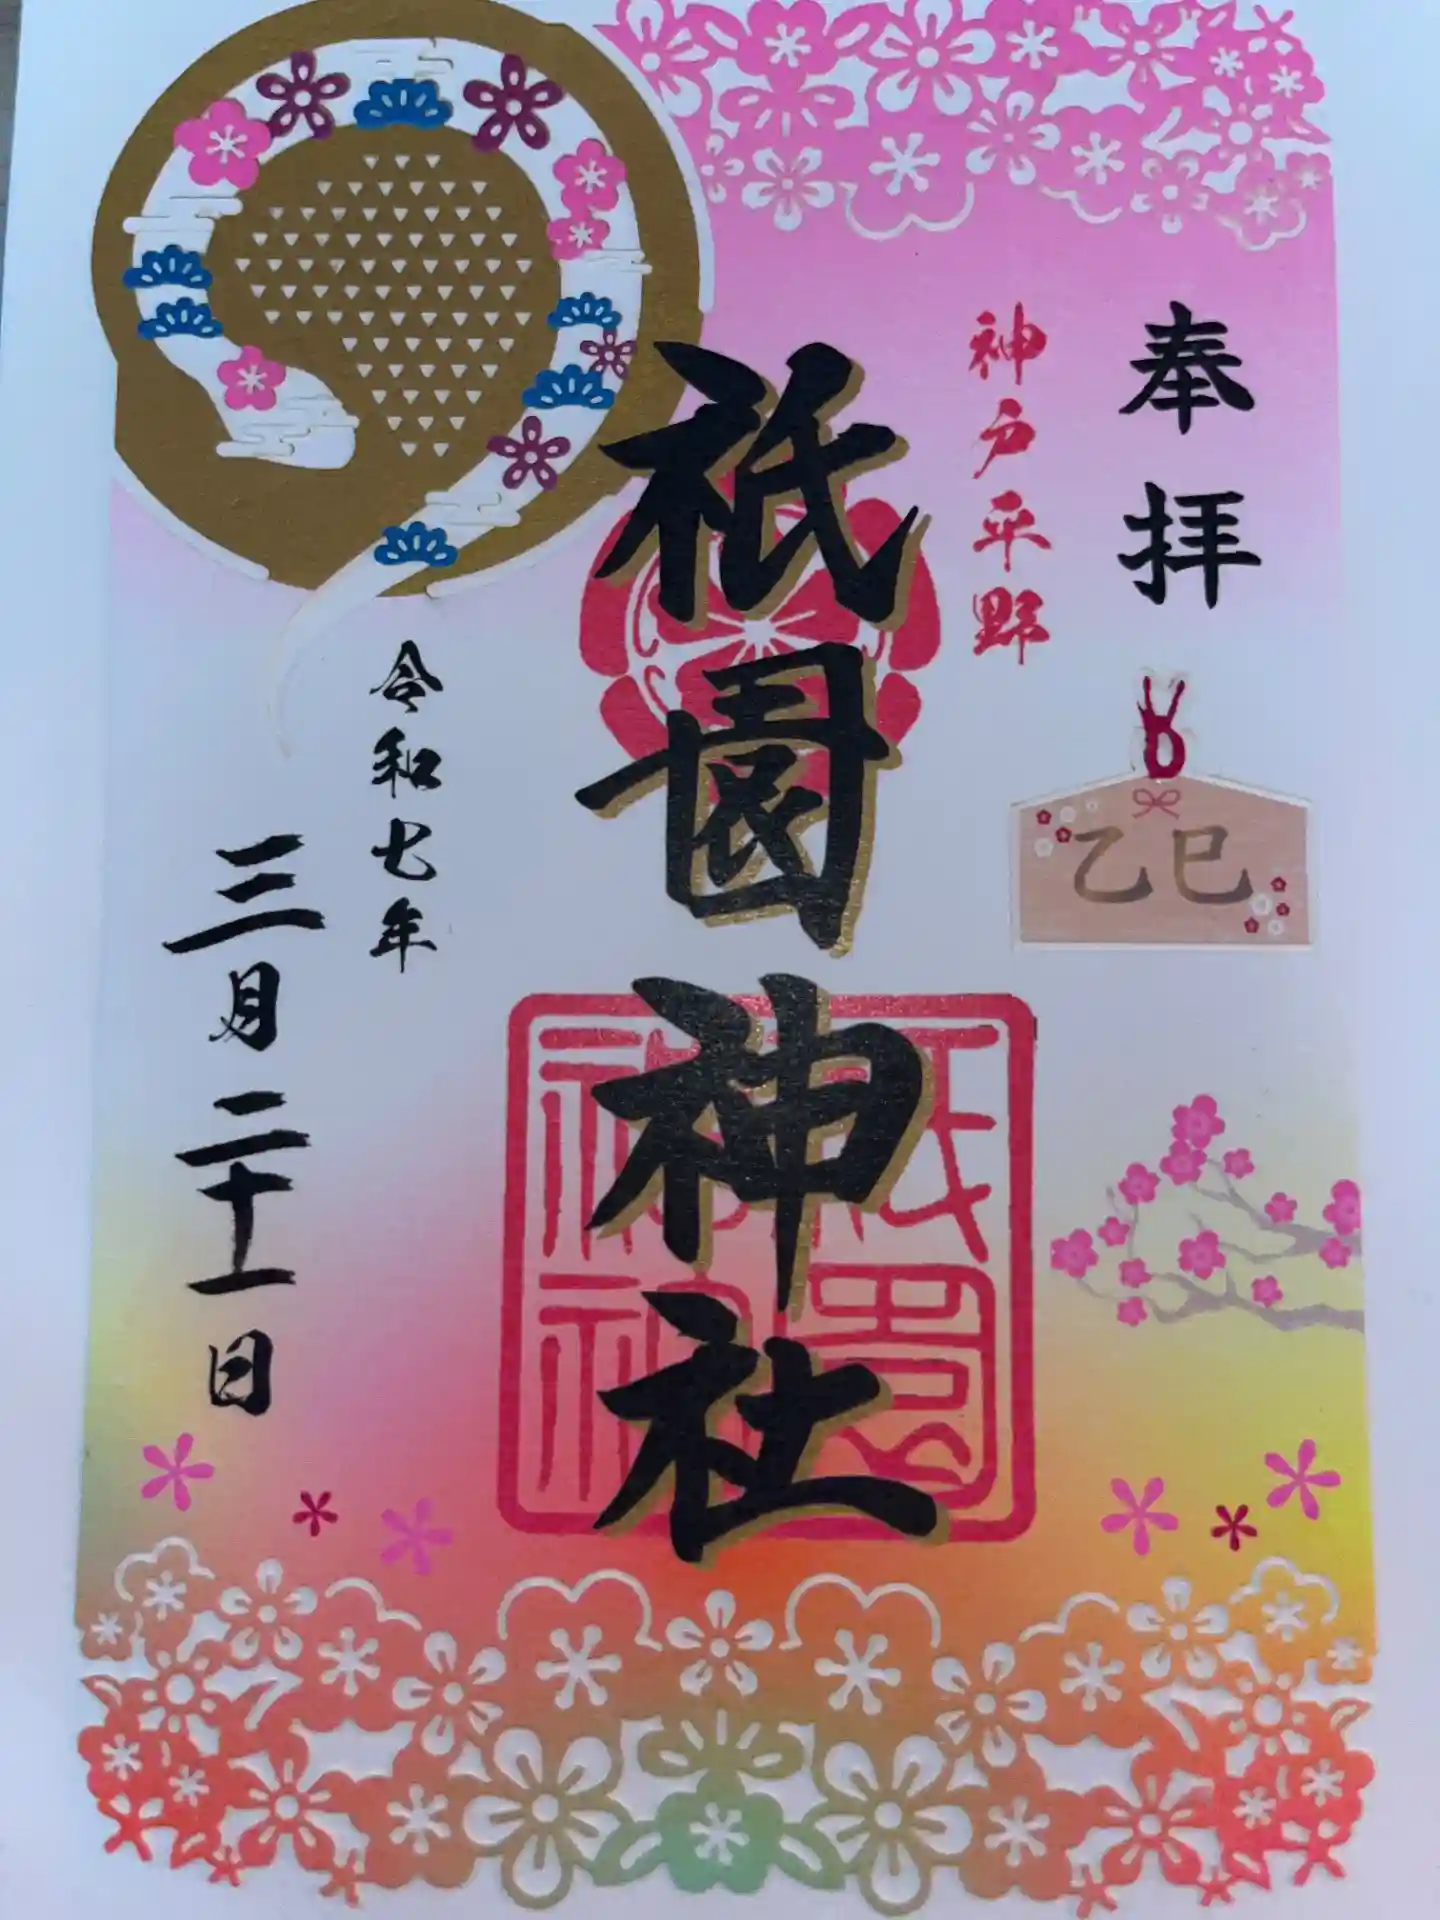 奉拝
神戸平野
乙巳
祇園神社
令和七年
三月二十一日
祇園
神社